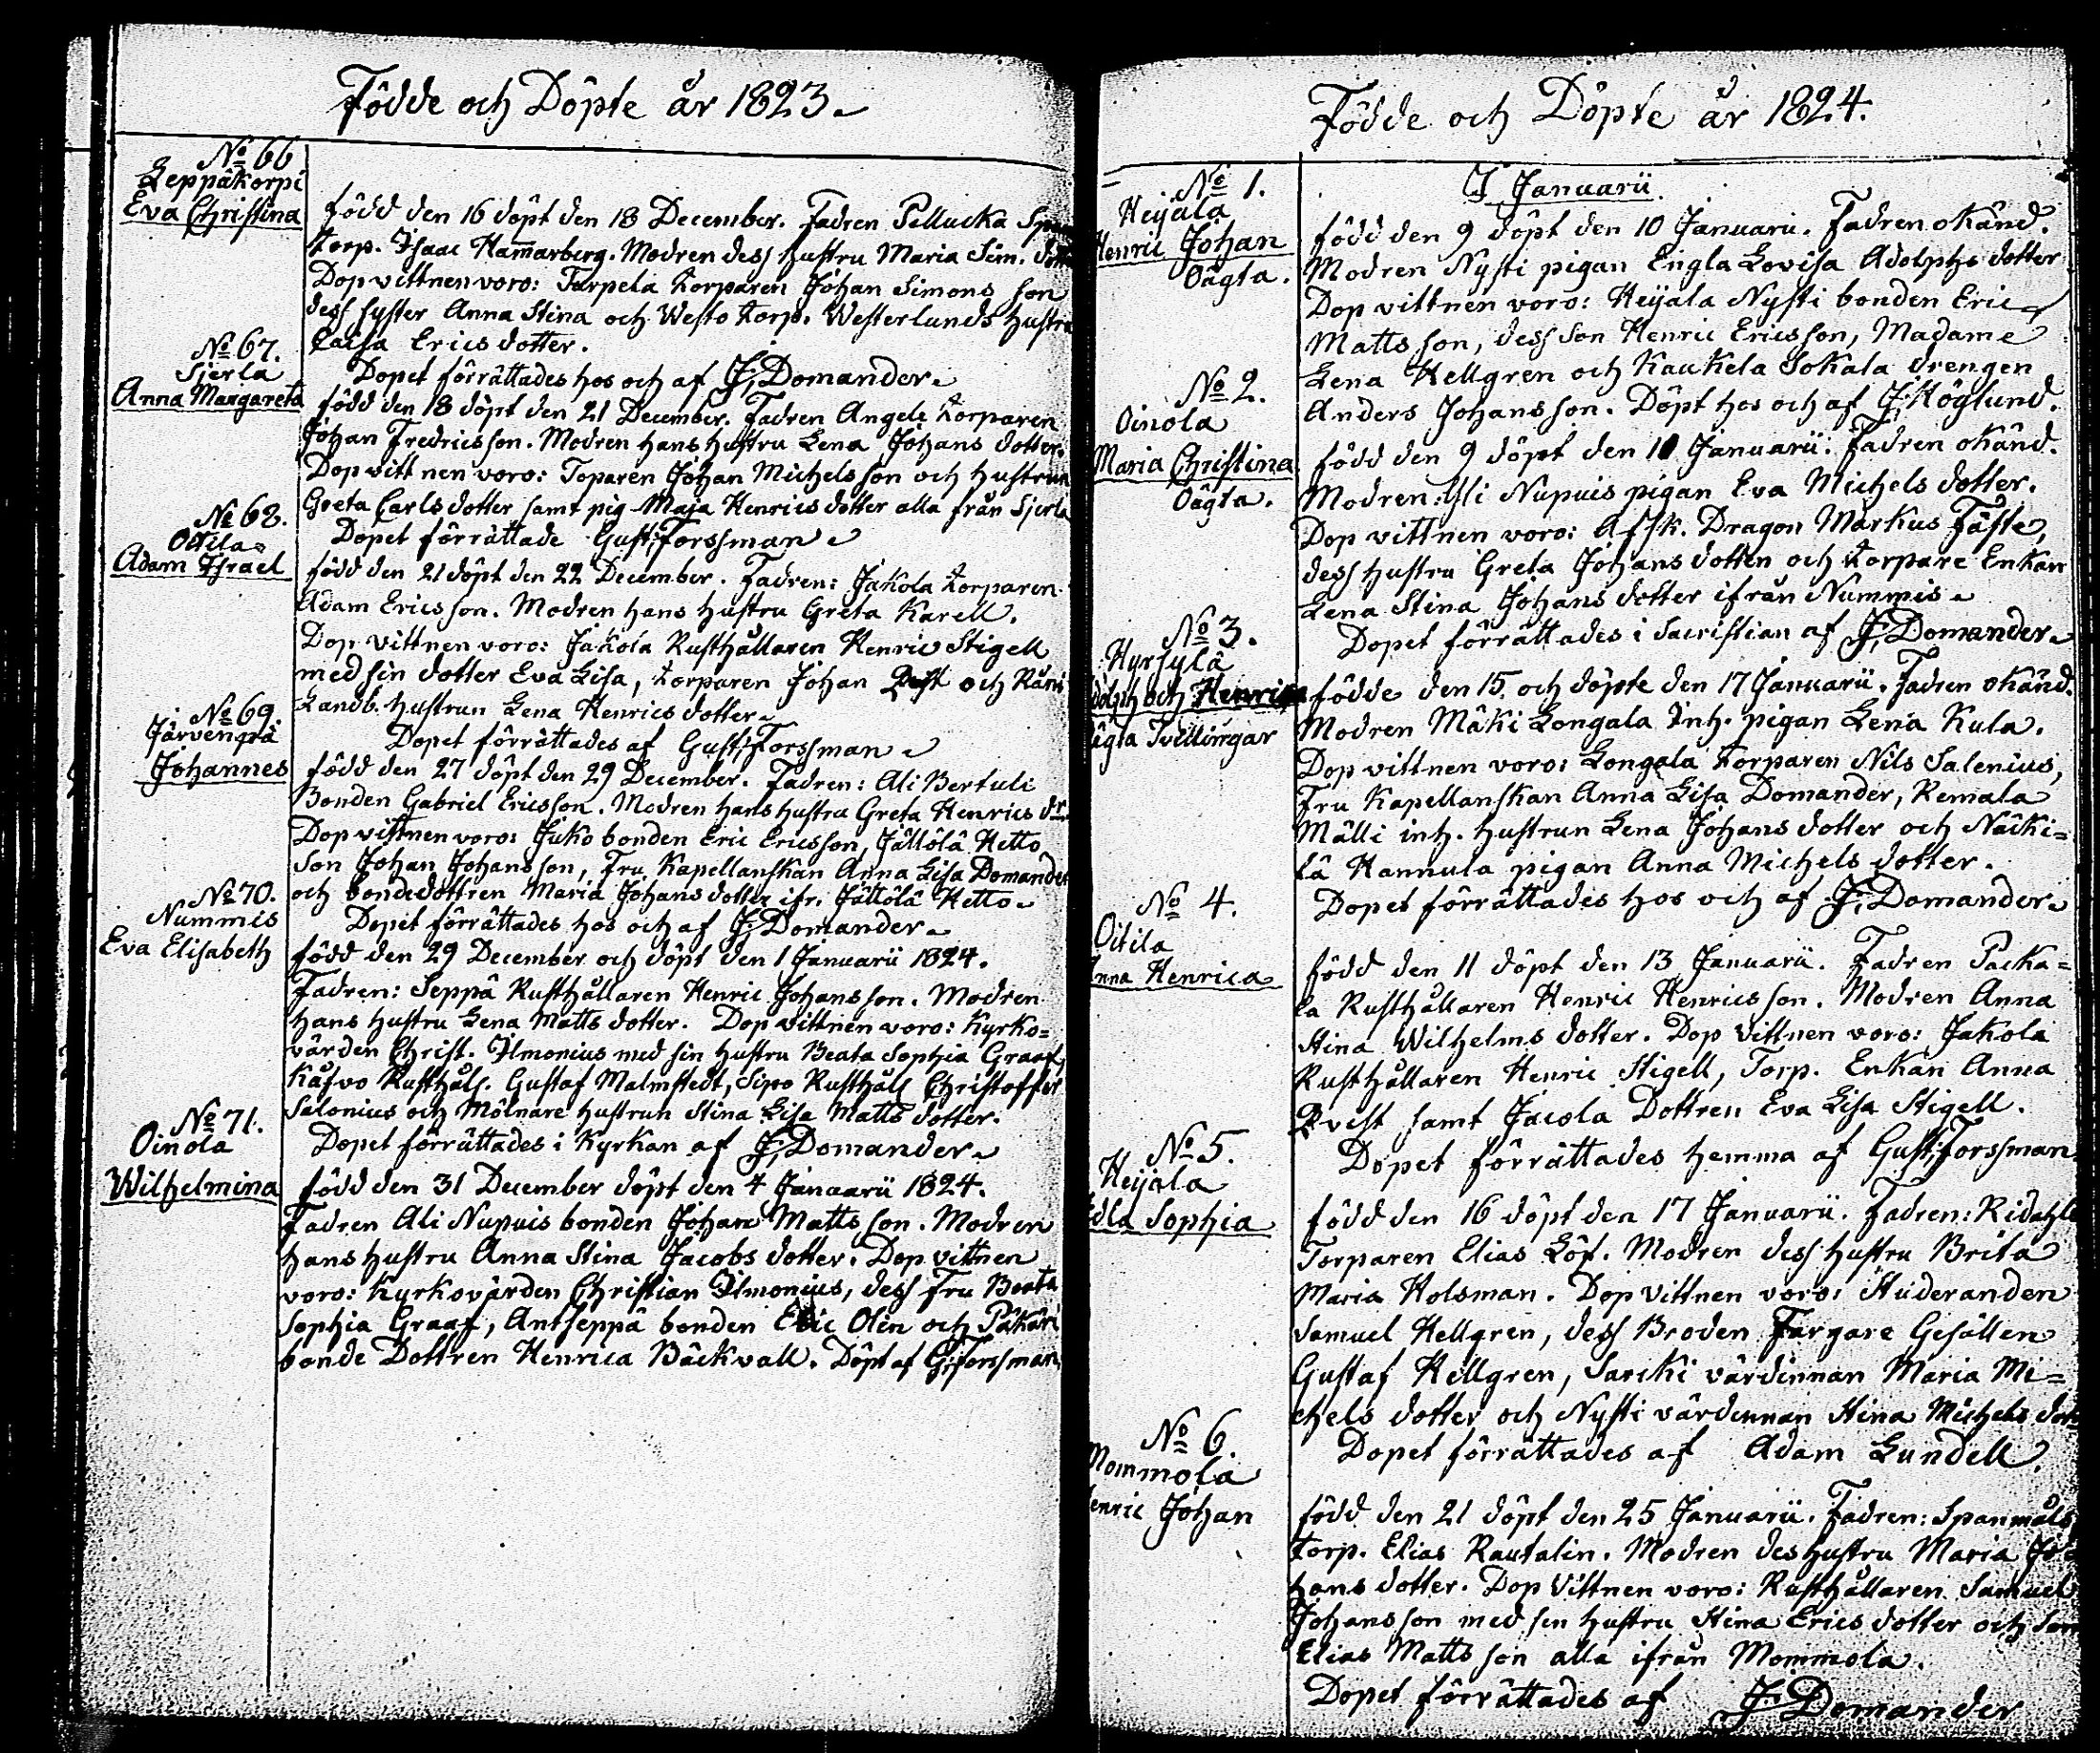 Födde och Döpte år 1823.
No 66
Leppäkorpi
Eva Christina
född den 16 döpt den 18 December. Fadren Pellucka
torp. Isaac Hamarberg. Modren dess hustru Maria Sim.
Dop vittnen voro: Turpela torparen Johan Simons son
dess syster Anna Stina och Westo torp. Westerlunds hustru
Caisa Erics dotter.
Dopet förrättades hos och af J. Domander.
No 67.
Sjerla
Anna Margareta
född den 18 döpt den 21 December. Fadren Angela torparen
Johan Fredricsson. Modren hans hustru Lena Johans dotter.
Dop vittnen voro: Toparen Johan Michelsson och hustrun
Greta Carls dotter samt pig Maja Henrics dotter alla från Sjerla
Dopet förrättade Gust. Forssman
No 68.
Ottila
Adam Israel
född den 21 döpt den 22 December. Fadren: Jakola torparen
Adam Ericsson. Modren hans hustru Greta Karell.
Dop vittnen voro: Jakola Rusthållaren Henric Stigell
med sin dotter Eva Lisa, torparen Johan Qvist och
Landb. hustrun Lena Henrics dotter
Dopet förrättades af Gust. Forssman
No 69.
Järvenpä
Johannes
född den 27 döpt den 29 December. Fadren: Ali Bertuli
Bonden Gabriel Ericsson. Modren hans hustru Greta Henrics dr
Dop vittnen voro: Juko bonden Eric Ericsson, Jättölä Hetto
Son Johan Johansson, Fru Kapellanskan Anna Lisa Domander
och bondedottren Maria Johans dotter ifr. Jättölä Hetto
Dopet förrättades hos och af J. Domander
No 70.
Nummis
Eva Elisabeth
född den 29 December och döpt den 1 Januarii 1824.
Fadren: Seppä Rusthållaren Henric Johansson. Modren
hans hustru Lena Matts dotter. Dop vittnen voro: Kyrko=
värden Christ. Ilmonius med sin hustru Beata Sophia Graaf,
Käfvo Rusthåls. Gustaf Malmstedt, Sipo Rusthåls Christoffer
Salonius och Mölnare hustrun Stina Lisa Matts dotter.
Dopet förrättades i Kyrkan af J. Domander
No 71.
Oinola
Wilhelmina
född den 31 December döpt den 4 Januarii 1824.
Fadren Ali Nupuis bonden Johan Matts son. Modren
hans hustru Anna Stina Jacobs dotter. Dop vittnen
voro: Kyrkovärden Christian Ilmonius, dess Fru Beata
Sophia Graaf, Antseppä bonden Eric Olin och Päkäri
bonde Dottren Henrica Bäckvall. Döpt af G. Forssman
Födde och Döpte år 1824.
I Januarii
No 1.
Heijala
Henric Johan
Oägta.
född den 9 döpt den 10 Januarii. Fadren okänd.
Modren Nysti pigan Engla Lovisa Adolphs dotter
Dop vittnen voro: Heijala Nysti bonden Eric
Matts son, dess son Henric Ericsson, Madame
Lena Hellgren och Kaukela Sokala drengen
Anders Johansson. Döpt hos och af J. Höglund.
No 2.
Oinola
Maria Christina
Oägta.
född den 9 döpt den 10 Januarii. Fadren okänd.
Modren: Yli Nupuis pigan Eva Michels dotter.
Dop vittnen voro: Afsk. Dragon Markus Fäste,
dess hustru Greta Johans dotter och torpare Enkan
Lena Stina Johans dotter ifrån Nummis
Dopet förrättades i Sacristian af J. Domander
No 3.
Hyrsylä
och Henrica
Tvillingar
födde den 15 och döpte den 17 Januarii. Fadren okänd.
Modren Mäki Longala inh. pigan Lena Kula.
Dop vittnen voro: Longala torparen Nils Salenius,
Fru Kapellanskan Anna Lisa Domander, Remala
Mälli inh. hustrun Lena Johans dotter och Näcki=
lä Hannula pigan Anna Michels dotter.
Dopet förrättades hos och af J. Domander
No 4.
Oitila
Anna Henrica
född den 11 döpt den 13 Januarii. Fadren Packa=
la Rusthållaren Henric Henricsson. Modren Anna
Stina Wilhelms dotter. Dop vittnen voro: Jakola
Rusthållaren Henric Stigell, Torp. Enkan Anna
Qvist samt Jacola Dottren Eva Lisa Stigell.
Dopet förrättades hemma af Gust. Forssman
No 5.
Heijala
Edla Sophia
född den 16 döpt den 17 Januarii. Fadren:
Torparen Elias Löf. Modren dess hustru Brita
Maria Holsman. Dop vittnen voro: Studeranden
Samuel Hellgren, dess Broden Färgare Gesällen
Gustaf Hellgren, Sarcki värdinnan Maria Mi=
chels dotter och Nysti värdinnan Stina Michels
Dopet förrättades af Adam Lundell.
No 6.
Mommola
Henric Johan
född den 21 döpt den 25 Januarii. Fadren: Spanmåls
torp. Elias Rautalin. Modren des hustru Maria Jo=
hans dotter. Dop vittnen voro: Rusthållaren Samuel
Johansson med sin hustru Stina Erics dotter och Son
Elias Matts son alla ifrån Mommola.
Dopet förrättades af J. Domander